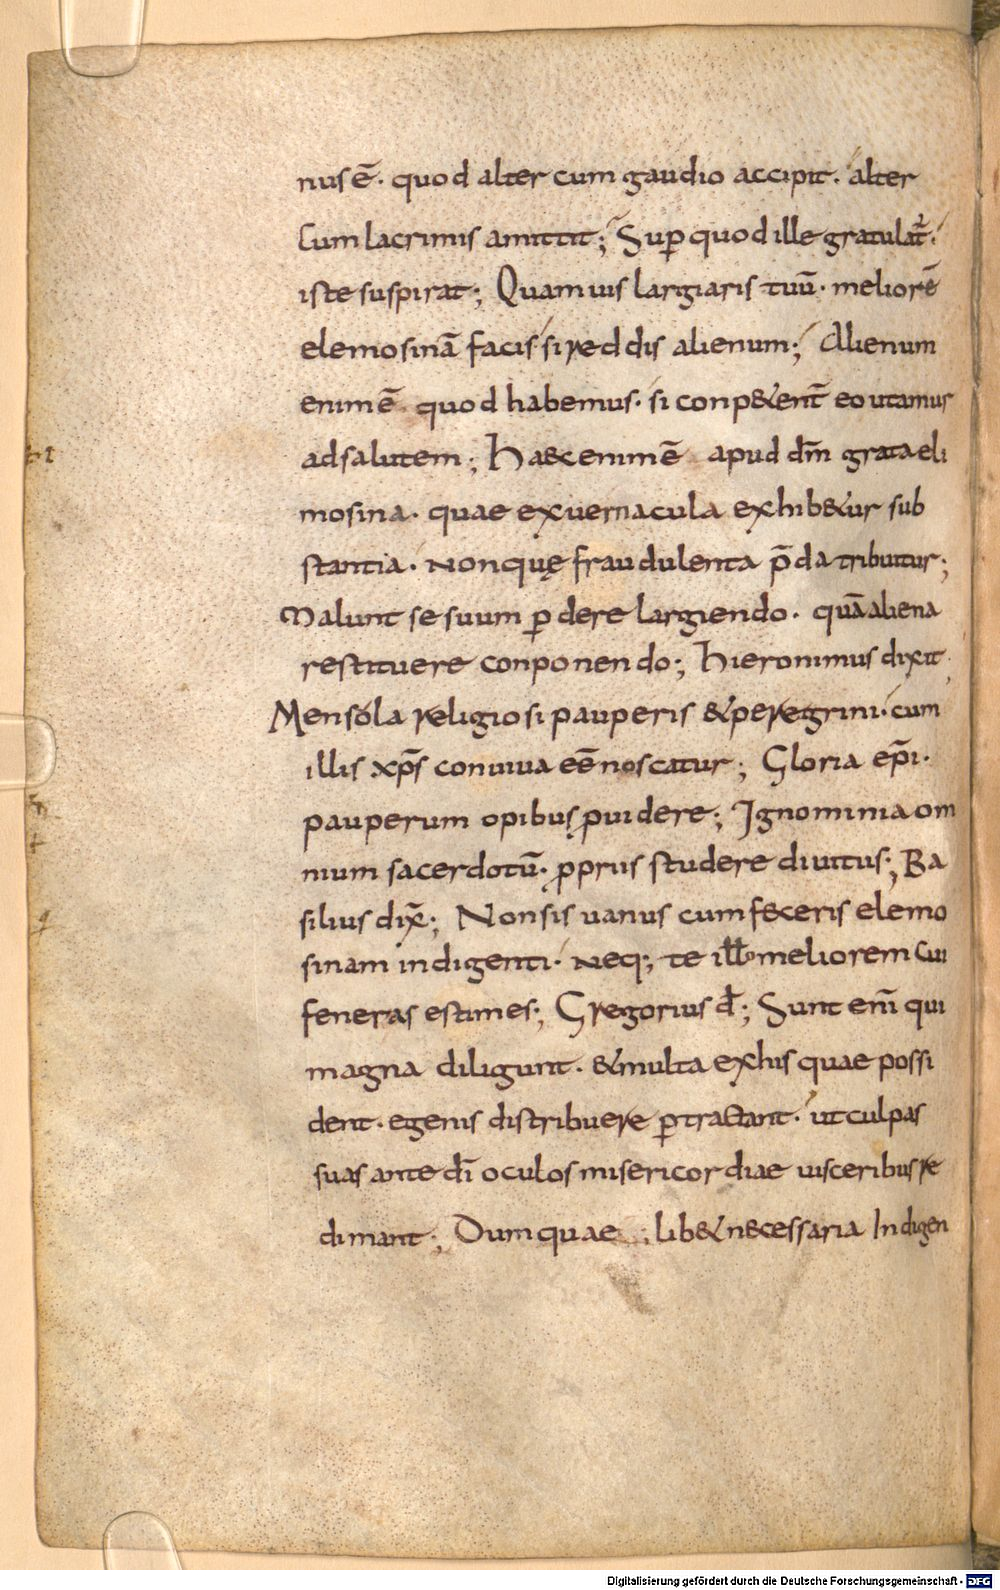 nus ē· quod alter cum gaudio accipit· alter
cum lacrimis amittit; Sup̱ quod ille gratulat̃·
iste suspirat; Quamuis largiaris tuū· meliorē
elemosinā facis si reddis alienum; Alienum
enim ē quod habemus· si conp&ent̄ eo utamur
ad salutem; Haec enim ē apud dm̄ grata eli
mosina· quae ex uernacula exhib&ur sub
stantia· Non quę fraudulenta p̄da tribuitur;
Malunt se suum ꝑdere largiendo· quā aliena
restituere conponendo; Hieronimus dixit
Mensola religiosi pauperis & peregrini· cum
illis xp̄s conuiua eē noscatur; Gloria ep̄i·
pauperum opibus ꝓuidere; Ignominia om
nium sacerdotū· ꝓpriis studere diuitiis; Ba
silius dix̄; Non sis uanus cum feceris elemo
sinam indigenti· Neq; te illo meliorem cui
feneras estimes; Gregorius d̄; Sunt enī qui
magna diligunt· & multa ex his quae possi
dent· egenis distribuere ꝑtractant· ut culpas
suas ante dī oculos misericordiae uisceribus re
dimant; Dum quae lib& necessaria Indigen
Digitalisierung gefördert durch die Deutsche Forschungsgemeinschaft - DFG